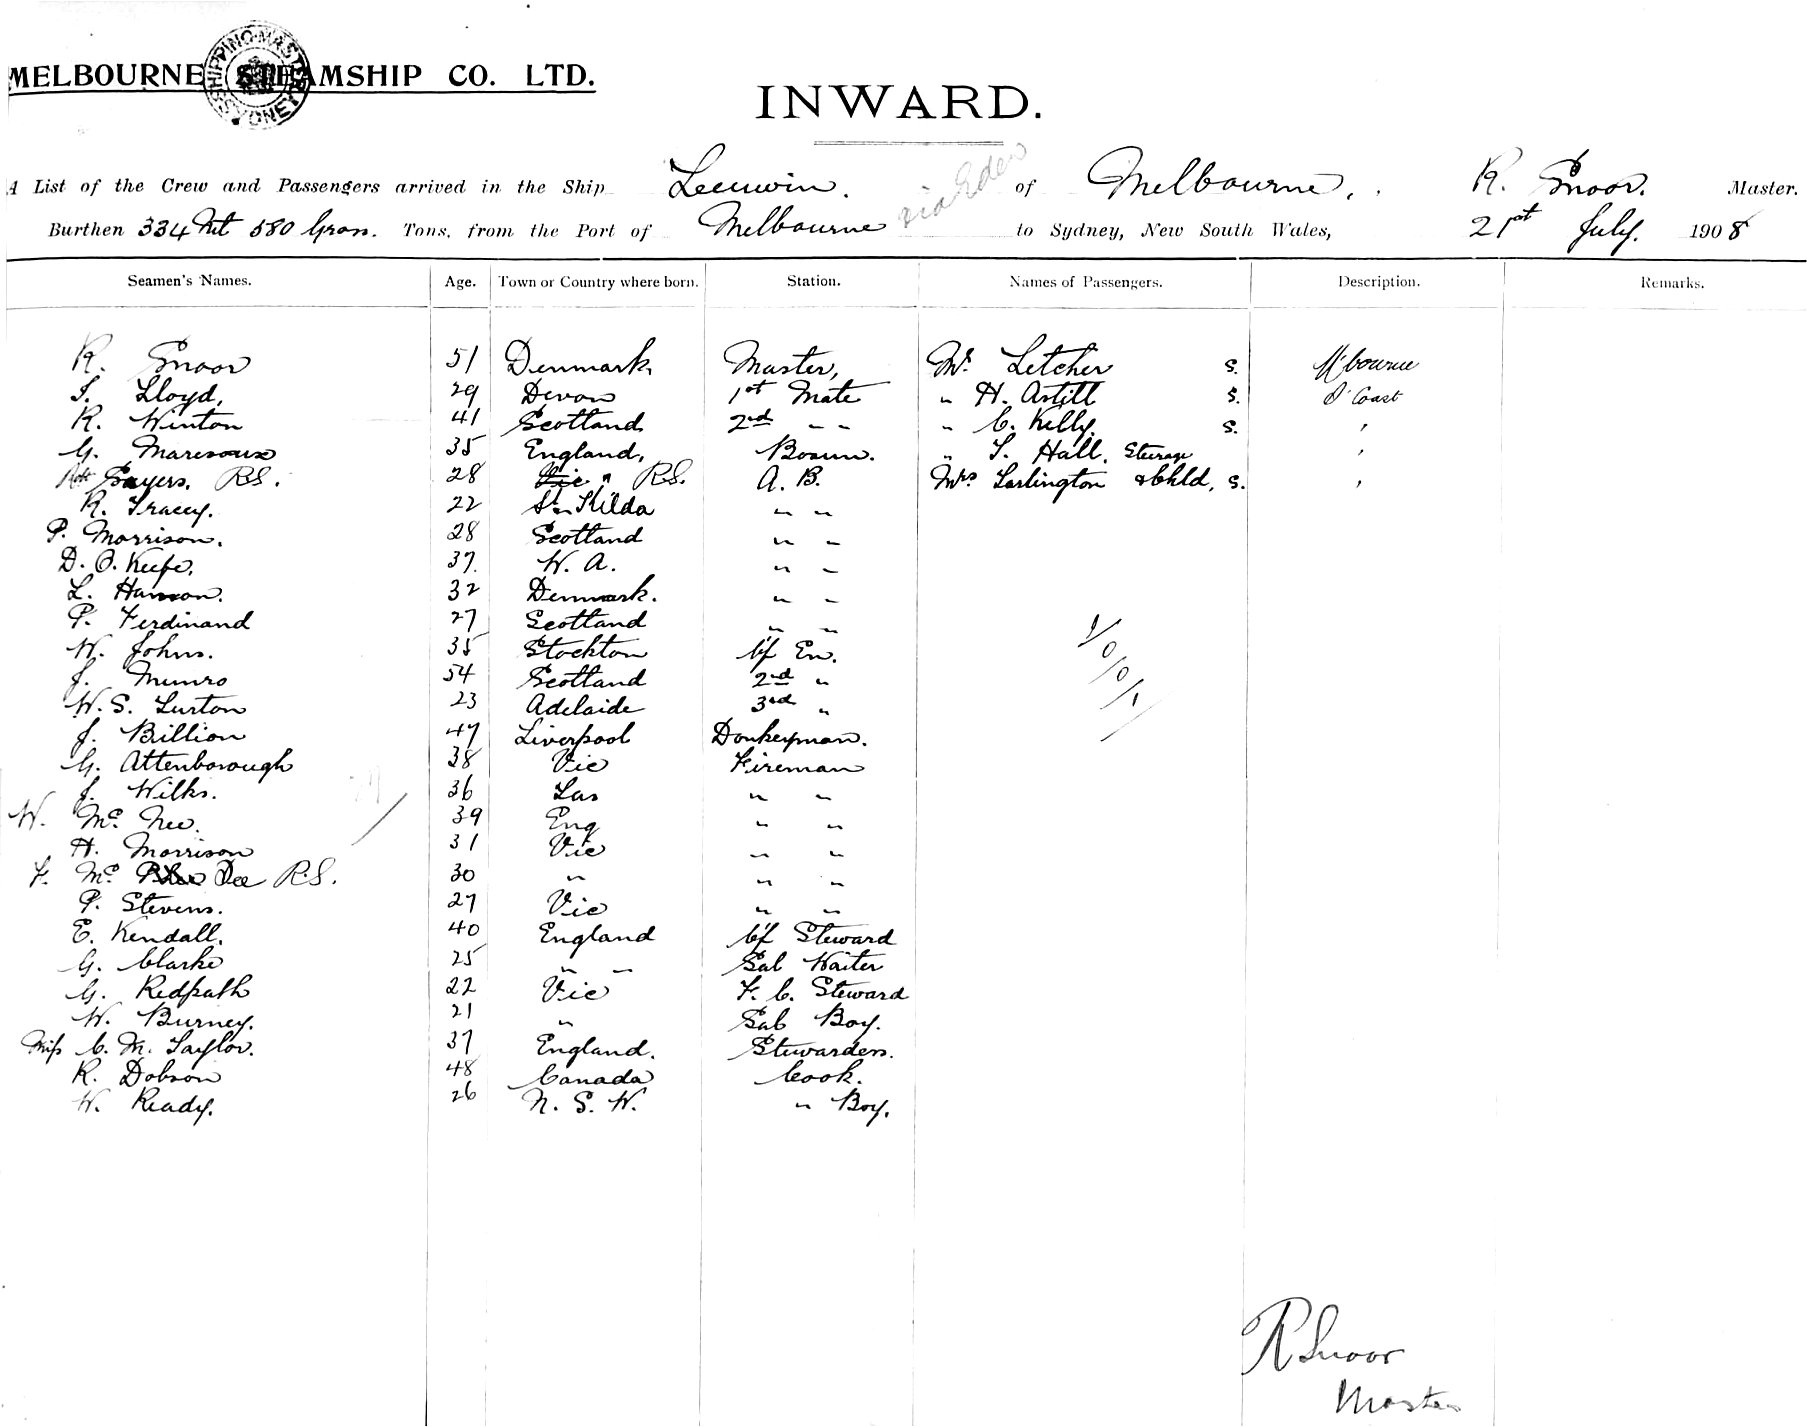 MELBOURNE STEAMSHIP CO. LTD.
SHIPPING MASTER SYDNEY
INWARD.
A List of the Crew and Passengers arrived in the Ship Leeuwin. via Eden of Melbourne, R. Snoor. Master.
Burthen 334 Net 580 Gross. Tons, from the Port of Melbourne to Sydney, New South Wales, 21st July. 1908
Seamen's Names. Age. Town or Country where born. Station. Names of Passengers. Description. Remarks.
R. Snoor 51 Denmark, Master, Mr. Letcher S. M'bourne
S. Lloyd, 29 Devon 1st Mate " H. Astill S. S' Coast
R. Winton 41 Scotland 2nd " " " C. Kelly. S. "
G. 35 England, Bosun. " T. Hall. Steerage "
Sayers. R.S. 28 Vic " R.S. A. B. Mrs Tarlington & Chld, S. "
R. Tracey. 22 St. Kilda " "
P. Morrison. 28 Scotland " "
D. O. Keefe. 37. W. A. " "
L. Hanson. 32 Denmark. " "
P. Ferdinand 27 Scotland " "
W. Johns. 35 Stockton Cf En.
J. Munro 54 Scotland 2nd "
W. S. Turton 23 Adelaide 3rd "
J. Brillion 47 Liverpool Donkeyman.
G. Attenborough 38 Vic Fireman
J. Wilks. 36 Tas " "
W. Mc. Nee. 39 Eng " "
H. Morrison 31 Vic " "
F. Mc. Dee R.S. 30 " " "
P. Stevens. 27 Vic " "
E. Kendall. 40 England Cf Steward
G. Clarke 25 " " Sal Waiter
G. Redpath 22 Vic F. C. Steward
W. Burney. 21 " Sal Boy.
Miss C. M. Taylor. 37 England. Stewardess.
R. Dobson 48 Canada Cook.
W. Ready. 26 N. S. W. " Boy.
R Snoor
Master